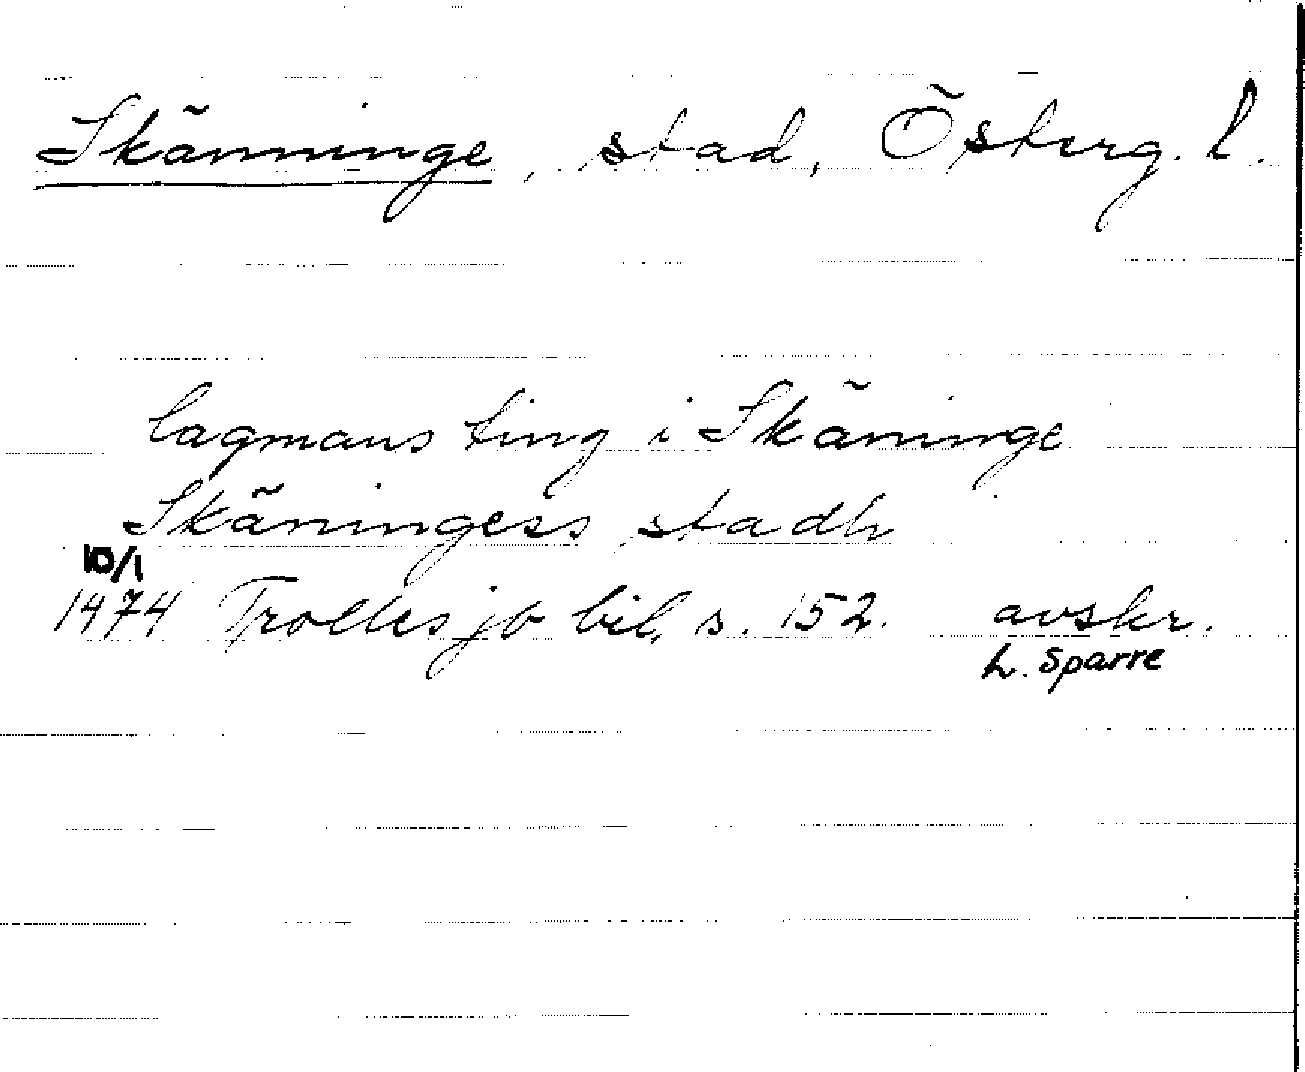 Skänninge, stad, Österg. l.
lagmans ting i Skäninge
Skäningess stadh
10/1
1474 Trolles jb bil, s. 152. avskr.
L. Sparre